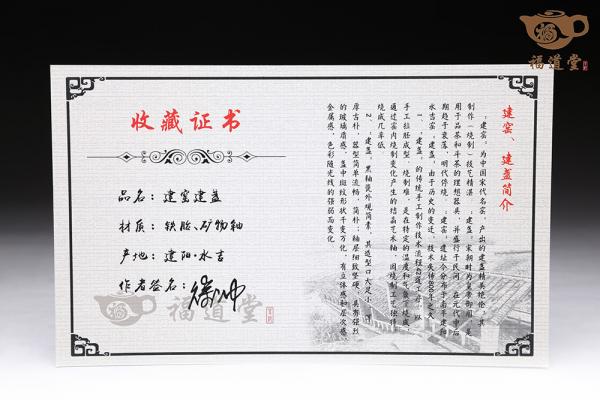 福道堂
收藏证书
品名：建窑建盏
材质：铁胎、矿物釉
产地：建阳·水吉
作者签名：
福道堂
建窑、建盏简介
"建窑"，为中国宋代名窑，产出的建盏精美绝伦，其
制作（烧制）技艺精湛。"建盏"宋朝时为皇帝御用，是
用于品茶和斗茶的理想器具，并盛行于民间，在元代中后
期趋于衰落，明代停烧。"建窑"遗址分布于南平建阳
水吉窑。"建盏"由于历史的变迁，技术失传
1、"建盏"的传统手工制作技术流程
手工拉胚成型，烧制难，是在特定的温度和气氛下烧成，
通过窑内烧制变化产生的结晶艺术釉，因烧制工艺独特
烧成几率低。
2、"建盏"黑釉瓷外观简素，其造型口大足小，
厚古朴，器型简单流畅，简朴；釉层细致坚硬，具有强烈
的玻璃质感，盏中斑纹形状千变万化，有立体感和层次感
金属感，色彩随光线的强弱而变化